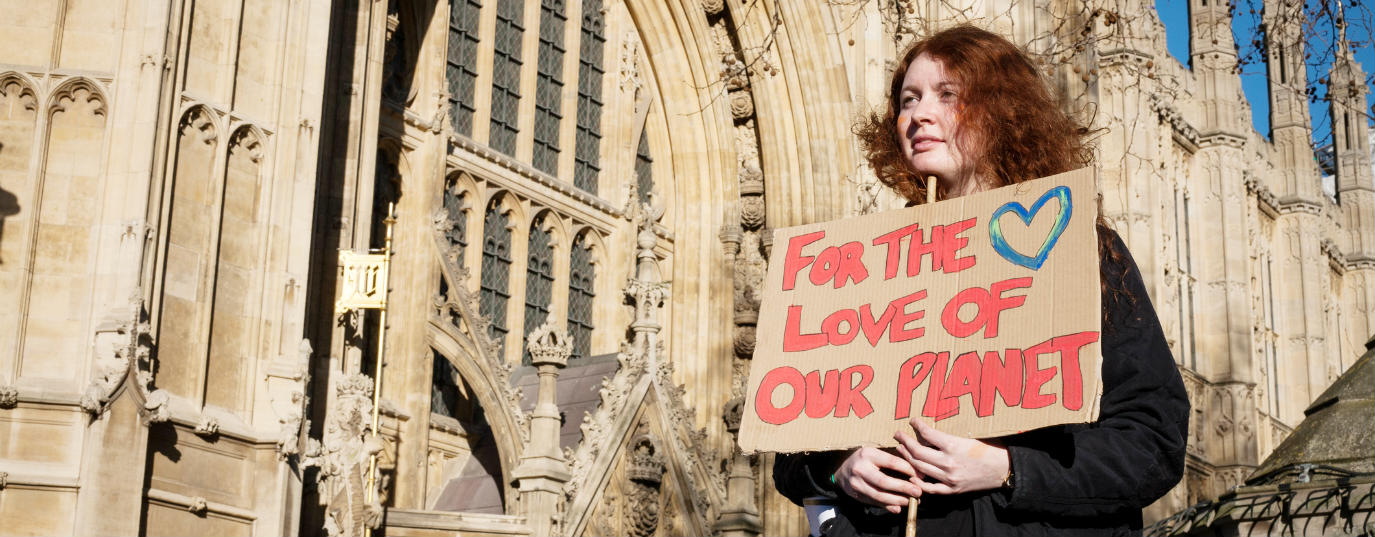 FOR THE
LOVE OF
OUR PLANET